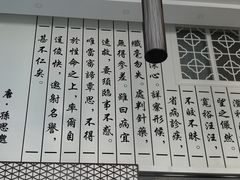 望之儼然，
寬裕汪汪，
不皎不昧。
省病診疾，
深心。詳察形候，
纖毫勿失，處判針藥，
無得參差。雖曰病宜
速救，要須臨事不惑，
唯當審諦覃思，不得
於性命之上，率爾自
逞俊快，邀射名譽，
甚不仁矣。
唐·孫思邈